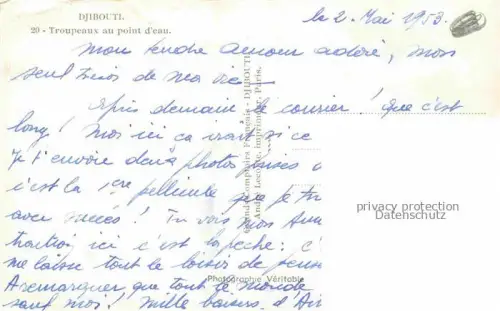 DJIBOUTI.
20 - Troupeaux au point d'eau.
le 2. Mai 1953.
mon tendre amour adoré, mon
seul de ma vie
Après demain le courrier! que c'est
long! Moi ici ça irait si ce
Je t'envoie deux photos prises
c'est la 1ère pellicule que je
avec succès! Tu vois mon
ici c'est la pêche: c'
me laisse tout le loisir de
A remarquer que tout le monde
sauf moi! Mille baisers.
Grand Comptoirs Français - DJIBOUTI
André Leconte, imprimeur, Paris.
Photographie Véritable
privacy protection
Datenschutz